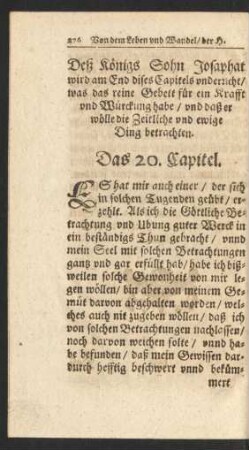 276 Von dem Leben vnd Wandel / der H.
Deß Königs Sohn Josaphat
wird am End dises Capitels vnderricht /
was das reine Gebett für ein Krafft
vnd Würckung habe / vnd daß er
wölle die Zeitliche vnd ewige
Ding betrachten.
Das 20. Capitel.
ES hat mir auch einer / der sich
in solchen Tugenden geübt / er-
zehlt. Als ich die Göttliche Be-
trachtung vnd Ubung guter Werck in
ein beständigs Thun gebracht / vnnd
mein Seel mit solchen Betrachtungen
gantz vnd gar erfüllt hab / habe ich biß-
weilen solche Gewonheit von mir le-
gen wöllen / bin aber von meinem Ge-
müt darvon abgehalten worden / wel-
ches auch nit zugeben wöllen / daß ich
von solchen Betrachtungen nachlassen /
noch darvon weichen solte / vnnd ha-
be befunden / daß mein Gewissen dar-
durch hefftig beschwert vnnd bekům-
mert